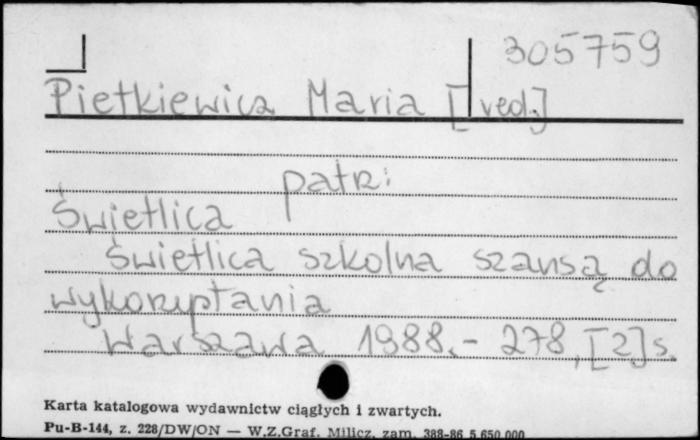 305759
Pietkiewicz Maria [red.]
patrz:
Świetlica
Świetlica szkolna szansą do
wykorzystania
Warszawa 1988.- 278, [2] s.
Karta katalogowa wydawnictw ciągłych i zwartych.
Pu-B-144, z. 228/DW/ON — W.Z.Graf. Milicz, zam. 388-86 5.650.000